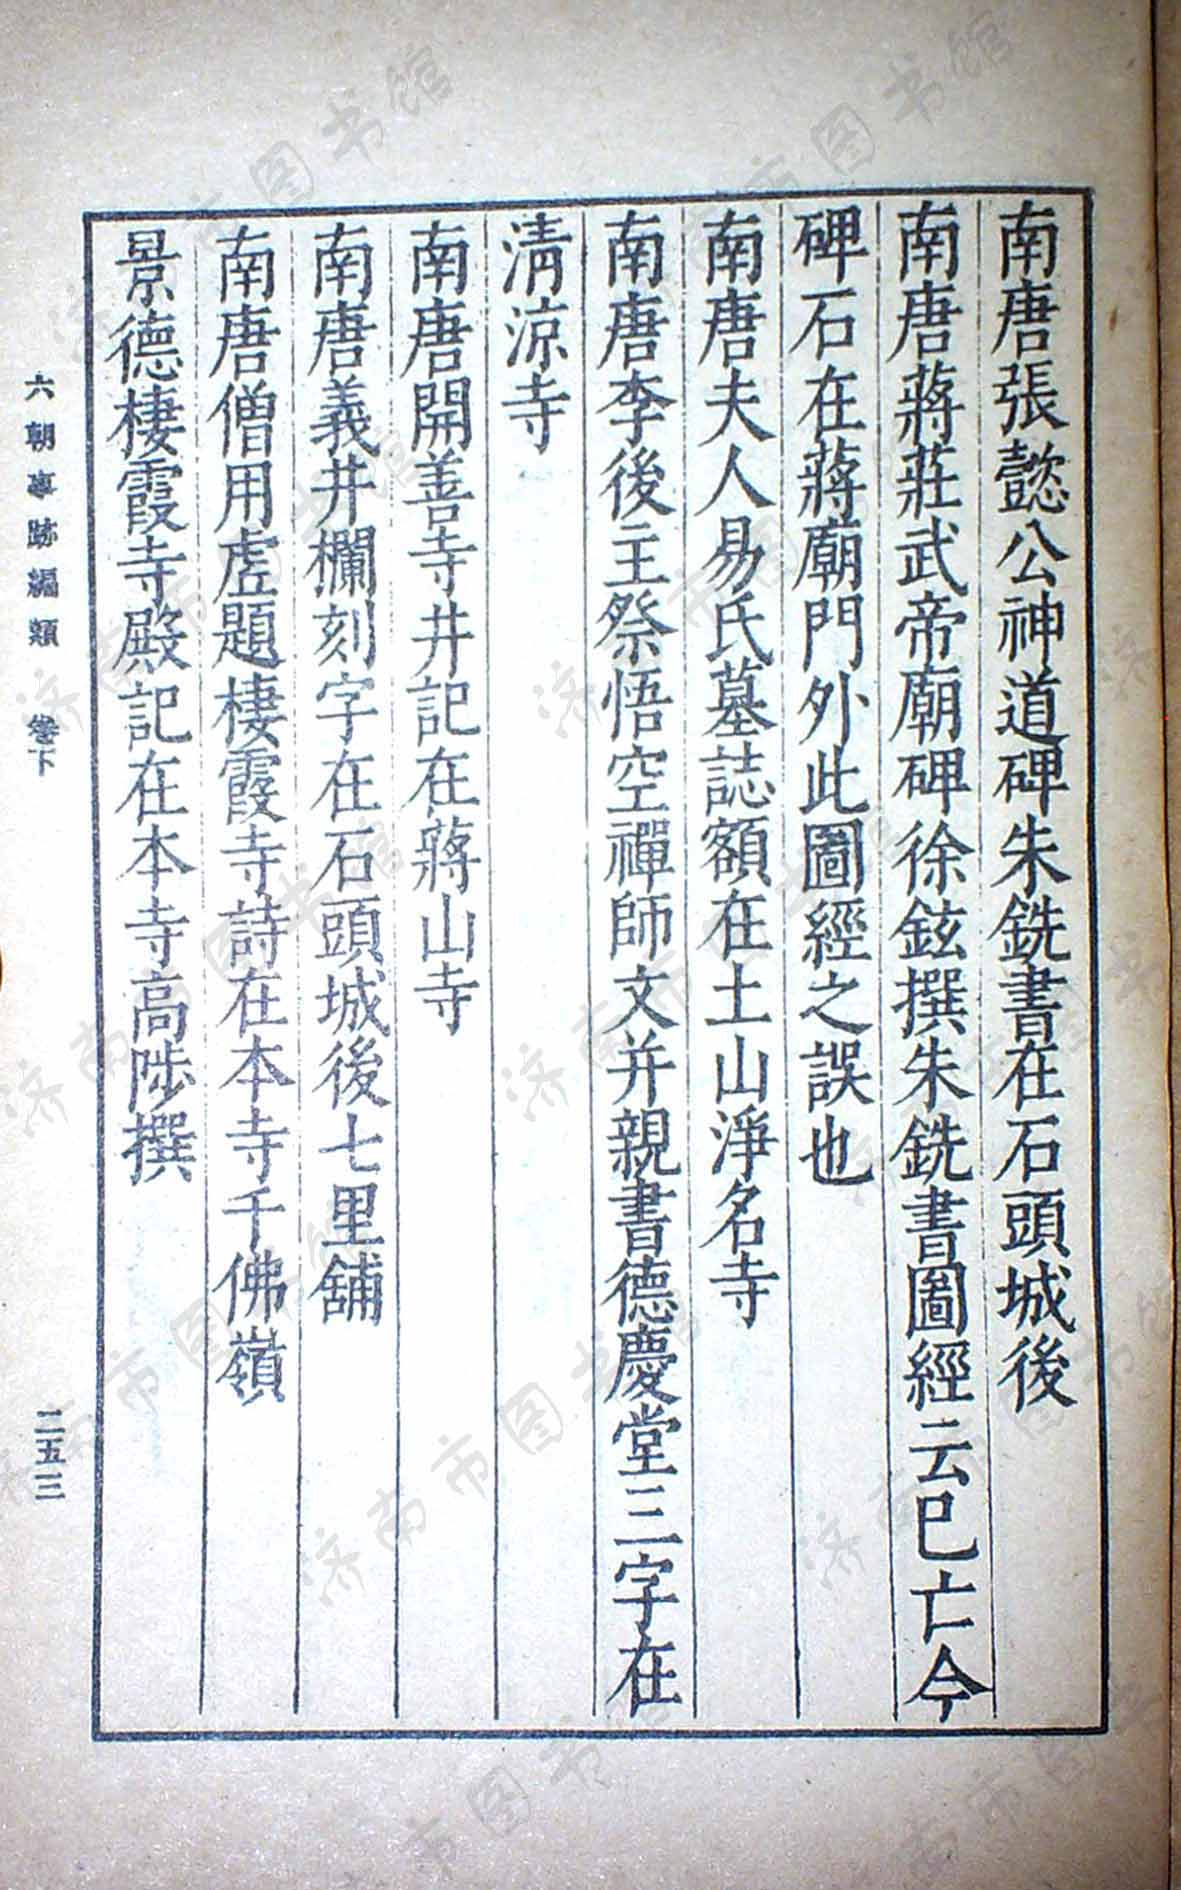 南唐張懿公神道碑朱銑書在石頭城後
南唐蔣莊武帝廟碑徐鉉撰朱銑書圖經云已亡今
碑石在蔣廟門外此圖經之誤也
南唐夫人易氏墓誌額在土山淨名寺
南唐李後主祭悟空禪師文并親書德慶堂三字在
淸涼寺
南唐開善寺井記在蔣山寺
南唐義井欄刻字在石頭城後七里舖
南唐僧用虛題棲霞寺詩在本寺千佛嶺
景德棲霞寺殿記在本寺高陟撰
六朝事跡編類 卷下
二五三
济南市图书馆